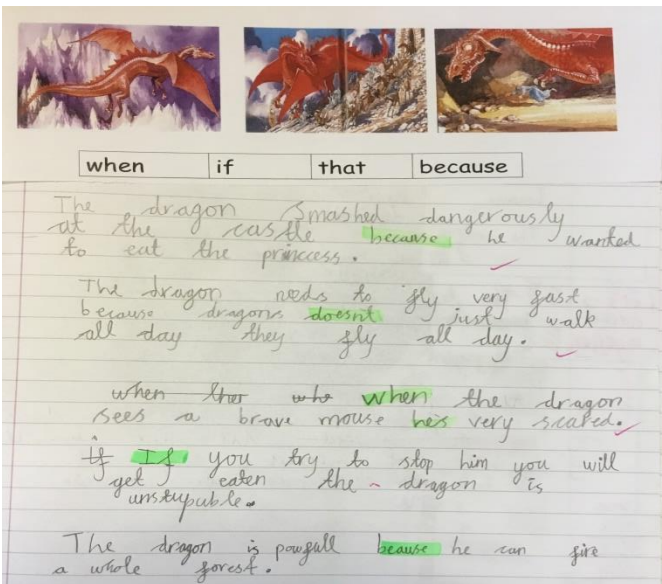 when if that because
The dragon smashed dangerously
at the castle because he wanted
to eat the princcess.
The dragon needs to fly very fast
because dragons doesn't just walk
all day they fly all day.
when ther who when the dragon
sees a brave mouse he's very scared.
if If you try to stop him you will
get eaten the dragon is
unstupuble.
The dragon is powfull beause he can fire
a whole forest.